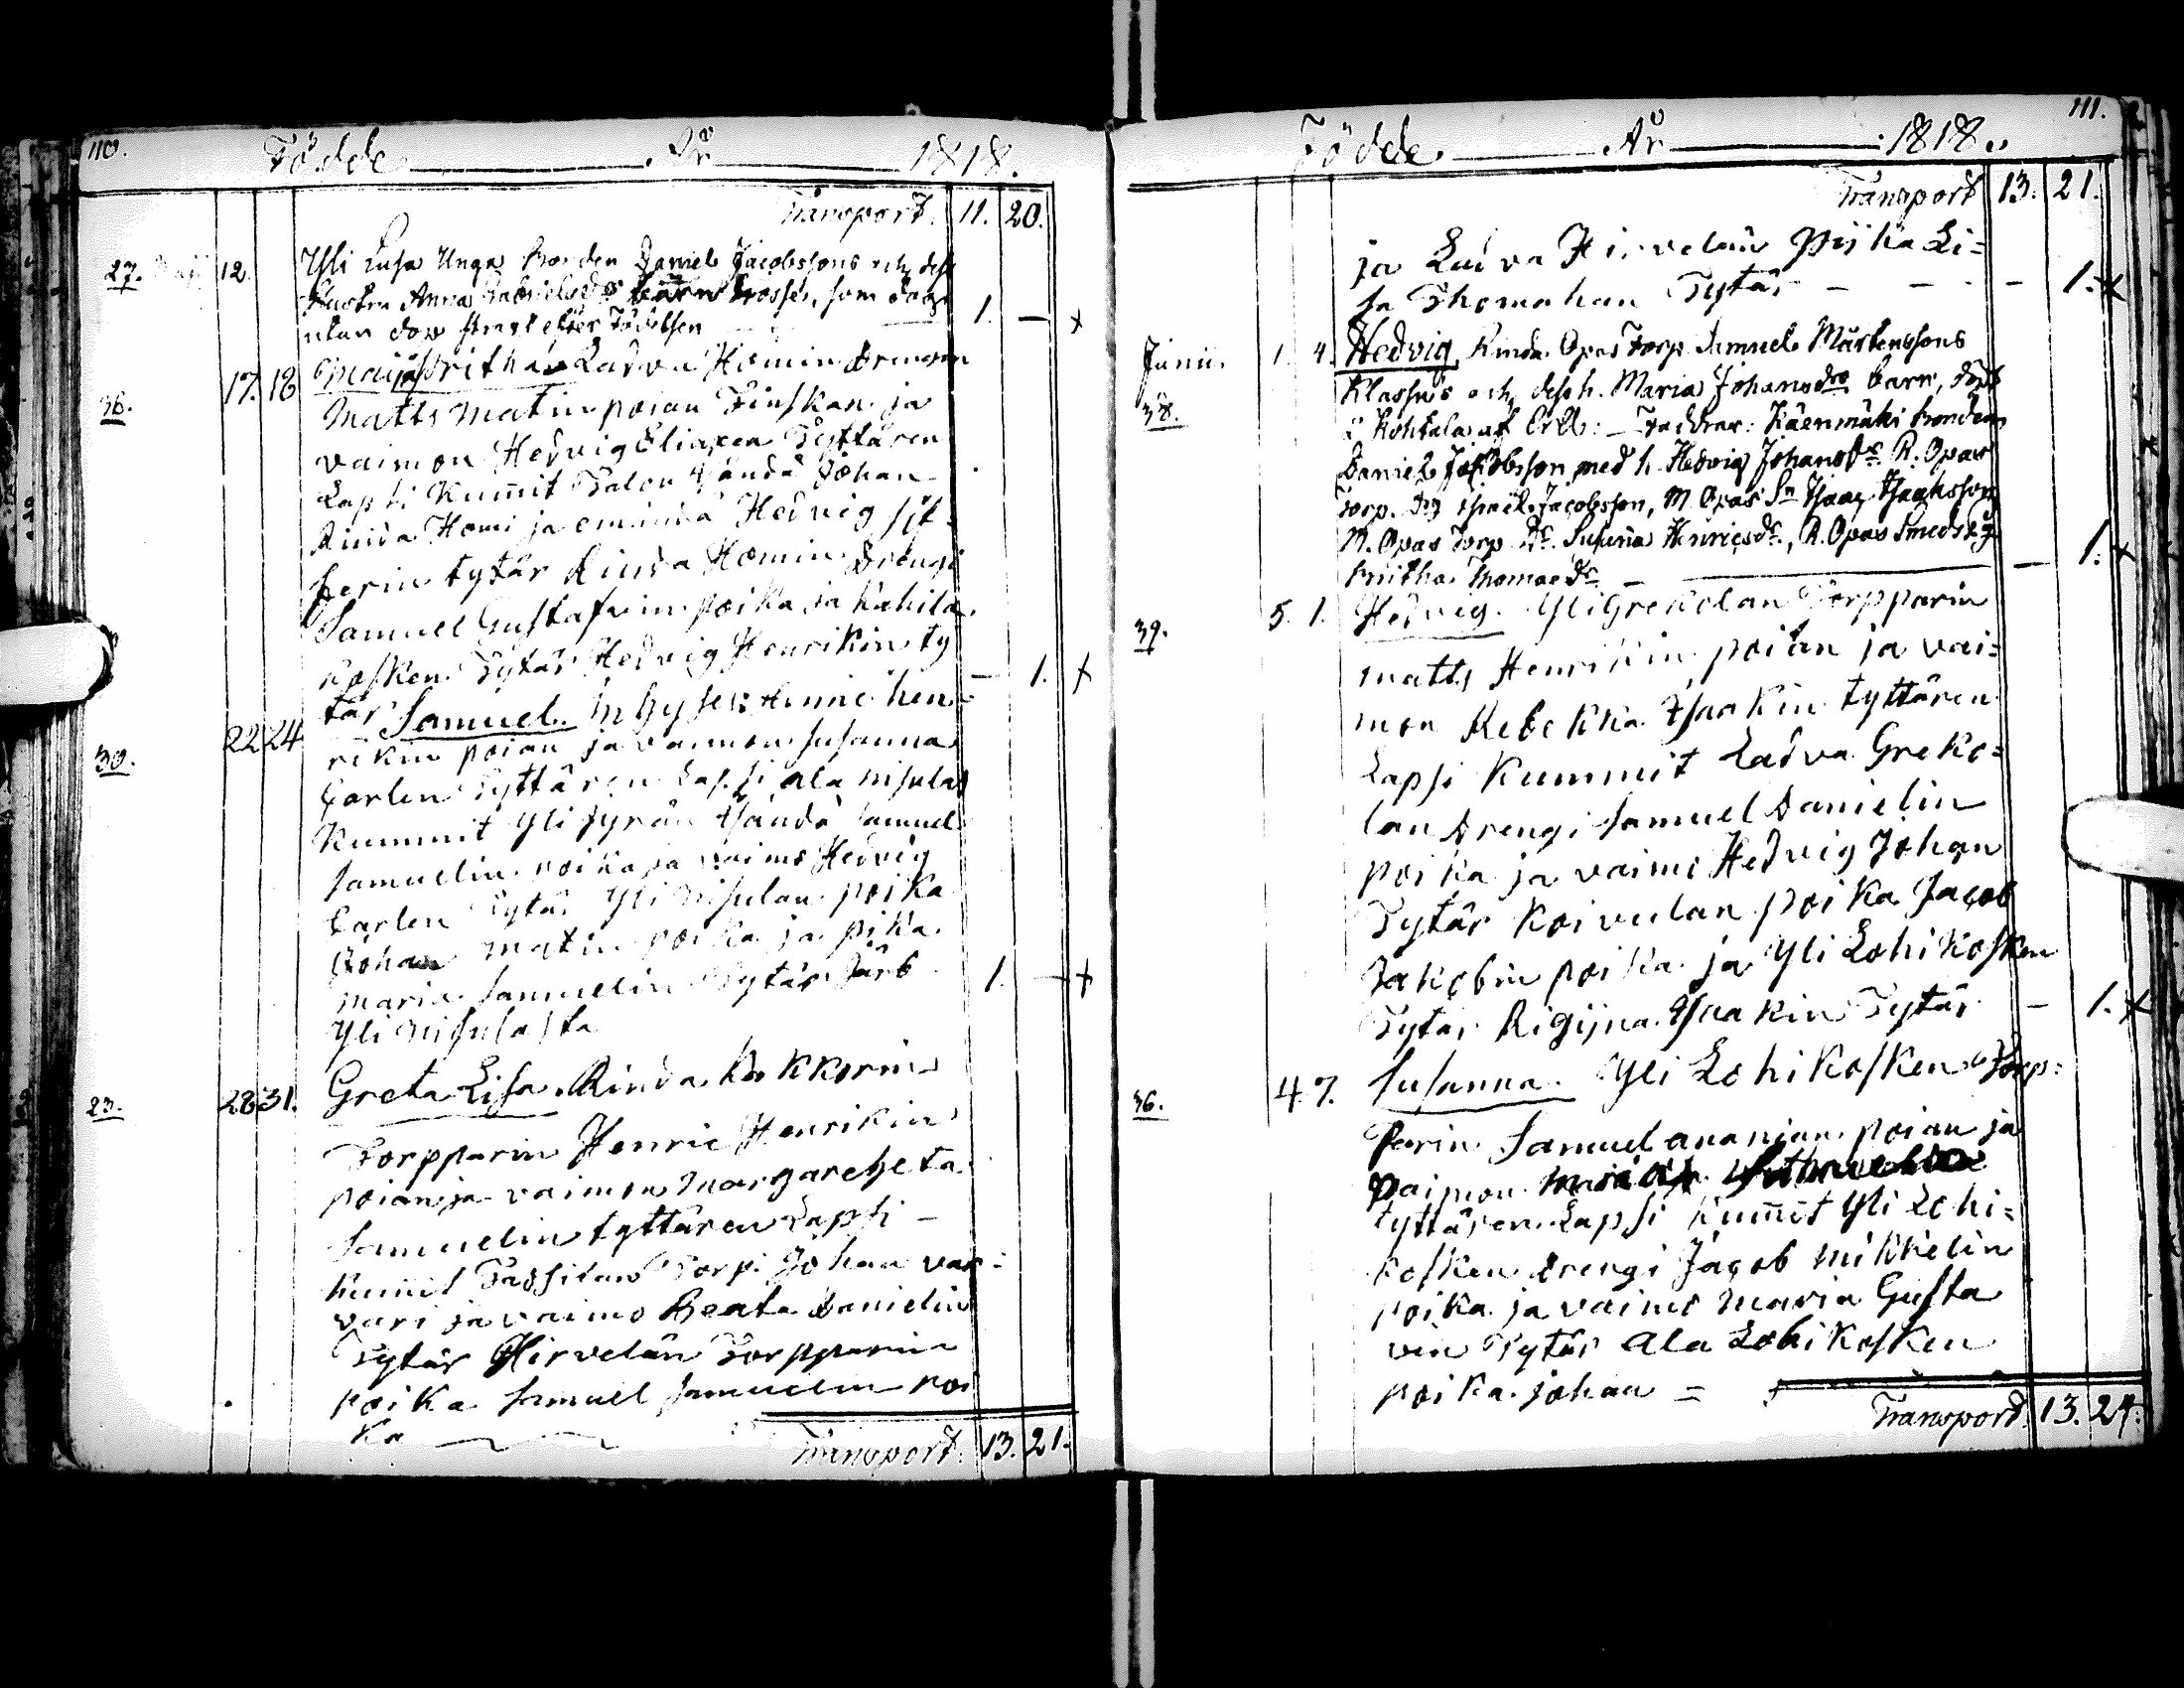 110. Födde År 1818.
Transport. 11. 20.
27. Maji 12. Yli Lusa Unga Bonden Daniel Jacobssons och dess
Hustru Anna Gabrielsdrs barn Gosse, som dog
utan dop strax efter Födelsen 1. — x
36. 17. 18 Maija Britha Ladva Homin drengin
Matts Matin poian Finskan ja
vaimon Hedvig Eliaxen Tyttären
Lapsi Kummit Talon Isändä Johan
Rinda Homi ja emindä Hedvig
tytär Rinda Homin Drengi
Samuel Gustafvin poika ja Kahila
kosken Tytär Hedvig Henrikin ty
tär — 1. x
30. 22 24 Samuel Henric hen=
rikin poian ja vaimon Susanna
Carlen Tyttären Lapsi ala nisulas
Kummit Yli Jyrän Isändä Samuel
Samuelin poika ja vaimo Hedvig
Carlen Tytär Yli Nisulan poika
Johan Matin poika ja pika
Maria Samuelin Tytär 1. — x
Yli Nisulasta
23. 28 31. Greta Lisa. Rinda Kokkorin
Torpparin Henric Henrikin
poian ja vaimon Margareheta
Samuelin tyttären Lapsi —
Kumit Tassilan Torp. Johan var=
vari ja vaimo Beata Danielin
Tytär Hirvelän Torpparin
poika Samuel Samuelin poi
ka
Transport. 13. 21.
111.
Födde År 1818.
Transport 13. 21.
ja Ladva Hirvelän Pijka Li=
sa Thomahan Tytär — — — 1. x
Junii. 1. 4. Hedvig, Rinda Opas Torp. Samuel Mårtenssons
38. Klassus och dess h. Maria Johansdrs barn, döpt
i Kohtala af — Faddrar: Käenmäki bonden
Daniel Jakobsson med h. Hedvig Johansdr. R. Opas
Torp. Jacobsson, M. Opas Sn Isaac Isaaksson
M. Opas Torp. Dr. Susanna Henricsdr, R. Opas
Britha Thomaedr — 1. x
39. 5. 1. Hedvig. Yli Grekolan Torpparin
matts Henrikin poian ja vai=
mon Rebekka Isaakin tyttären
Lapsi Kummit Ladva Greko=
lan Drengi Samuel Danielin
poika ja vaimo Hedvig Johan
Tytär Koivulan poika Jacob
Jakobin poika ja Yli Lohikosken
Tytär Rigijna Isaakin Tytär — 1. x
36. 4 7. Susanna. Yli Lohikosken Torp=
parin Samuel ananian poian ja
vaimon
tyttären Lapsi Kummit Yli Lohi=
kosken drengi Jacob Mikkelin
poika ja vaimo Maria Gusta
vin Tytär Ala Lohikosken
poika Johan =
Transport. 13. 24.